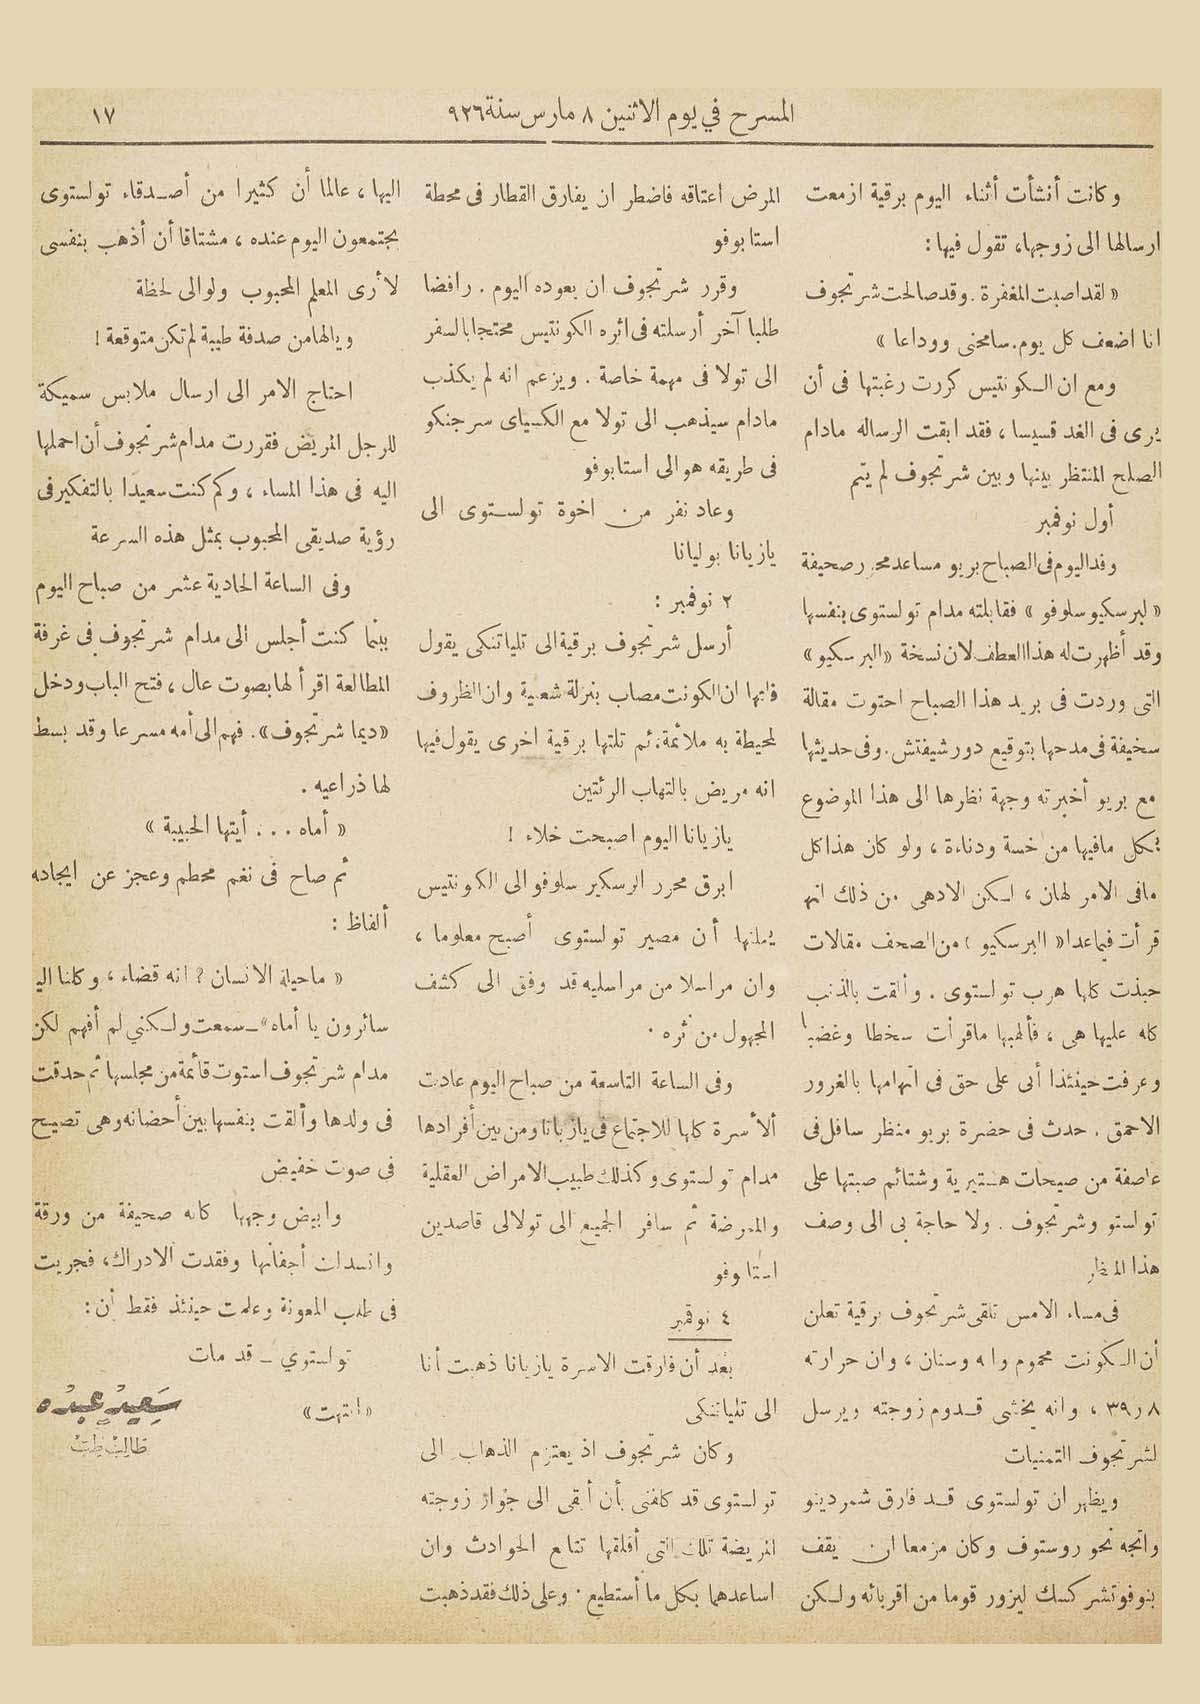 المسرح في يوم الاثنين ٨ مارس سنة ٩٢٦
١٧
وكانت أنشأت أثناء اليوم برقية ازمعت
ارسالها الى زوجها، تقول فيها :
« لقد اصبت المغفرة . وقد صالحت شرتجوف
انا اضعف كل يوم. سامحنى ووداعا »
ومع ان الكونتيس كررت رغبتها فى أن
يرى فى الغد قسيسا ، فقد ابقت الرساله مادام
الصلح المنتظر بينها وبين شرتجوف لم يتم
أول نوفمبر
وفد اليوم فى الصباح بريو مساعد محرر صحيفة
« لبرسكيو سلوفو » فقابلته مدام تولستوى بنفسها
وقد أظهرت له هذا العطف لان نسخة «البرسكيو»
التى وردت فى بريد هذا الصباح احتوت مقالة
سخيفة فى مدحها بتوقيع دورشيفتش . وفى حديثها
مع بريو أخبرته وجهة نظرها الى هذا الموضوع
بكل مافيها من خسة ودناءة ، ولو كان هذا كل
مافى الامر لهان ، لكن الادهى من ذلك انها
قرأت فيماعدا « البرسكيو » من الصحف مقالات
حبذت كلها هرب تولستوى . وألقت بالذنب
كله عليها هى ، فألهبها ماقرأت سخطا وغضبا
وعرفت حينئذا أنى على حق فى اتهامها بالغرور
الاحمق . حدث فى حضرة بريو منظر سافل فى
عاصفة من صيحات هستيرية وشتائم صبتها على
تولستو وشرتجوف . ولا حاجة بى الى وصف
هذا المنظر
فى مساء الامس تلقى شرتجوف برقية تعلن
أن الكونت محموم وانه وسنان ، وان حرارته
٣٩٫٨ ، وانه يخشى قدوم زوجته ويرسل
لشرتجوف التمنيات
ويظهر ان تولستوى قد فارق شمردينو
واتجه نحو روستوف وكان مزمعا ان يقف
بنوفوتشركسك ليزور قوما من اقربائه ولكن
المرض اعتاقه فاضطر ان يفارق القطار فى محطة
استابوفو
وقرر شرتجوف ان يعوده اليوم . رافضا
طلبا آخر أرسلته فى اثره الكونتيس محتجا بالسفر
الى تولا فى مهمة خاصة . ويزعم انه لم يكذب
مادام سيذهب الى تولا مع الكسياى سرجنكو
فى طريقه هو الى استابوفو
وعاد نفر من اخوة تولستوى الى
يازيانا بوليانا
٢ نوفمبر :
أرسل شرتجوف برقية الى تلياتنكى يقول
فيها ان الكونت مصاب بنزلة شعبية وان الظروف
لمحيطة به ملائمة، ثم تلتها برقية اخرى يقول فيها
انه مريض بالتهاب الرئتين
يازيانا اليوم اصبحت خلاء !
ابرق محرر البرسكير سلوفو الى الكونتيس
يعلنها أن مصير تولستوى أصبح معلوما ،
وان مراسلا من مراسليه قد وفق الى كشف
المجهول من ثره .
وفى الساعة التاسعة من صباح اليوم عادت
ألأسرة كلها للاجتماع فى يازيانا ومن بين أفرادها
مدام تولستوى وكذلك طبيب الامراض العقلية
والممرضة ثم سافر الجميع الى تولا الى قاصدين
استابوفو
٤ نوفمبر
بعد أن فارقت الاسرة يازيانا ذهبت أنا
الى تلياتنكى
وكان شرتجوف اذ يعتزم الذهاب الى
تولستوى قد كلفنى بأن أبقى الى جوار زوجته
المريضة تلك التى أقلقها تتابع الحوادث وان
اساعدهما بكل ما أستطيع . وعلى ذلك فقد ذهبت
اليها ، عالما أن كثيرا من أصدقاء تولستوى
يجتمعون اليوم عنده ، مشتاقا أن أذهب بنفسى
لأرى المعلم المحبوب ولو الى لحظة
ويالها من صدفة طيبة لم تكن متوقعة !
احتاج الامر الى ارسال ملابس سميكة
للرجل المريض فقررت مدام شرتجوف أن احملها
اليه فى هذا المساء ، وكم كنت سعيدا بالتفكير فى
رؤية صديقى المحبوب بمثل هذه السرعة
وفى الساعة الحادية عشر من صباح اليوم
بينما كنت أجلس الى مدام شرتجوف فى غرفة
المطالعة اقرأ لها بصوت عال ، فتح الباب ودخل
«ديما شرتجوف» . فهم الى أمه مسرعا وقد بسط
لها ذراعيه .
« أماه . . . أيتها الحبيبة »
ثم صاح فى نغم محطم وعجز عن ايجاده
ألفاظ :
« ماحيلة الانسان ? انه قضاء ، وكلنا اليـ
سائرون يا أماه» ــ سمعت ولكني لم أفهم لكن
مدام شرتجوف استوت قائمة من مجلسها ثم حدقت
فى ولدها وألقت بنفسها بين أحضانه وهى تصيح
فى صوت خفيض
وابيض وجهها كانه صحيفة من ورقة
وانسدلت أجفانها وفقدت الادراك، فجريت
فى طلب المعونة وعلمت حينئذ فقط أن :
تولستوي ــ قد مات
«انتهت»
سعيد عبده
طالب طب